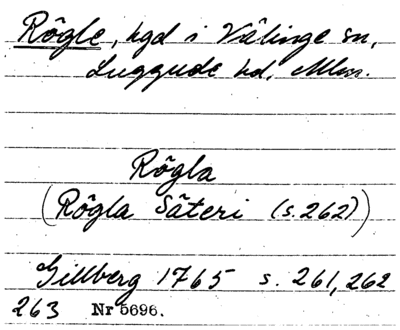 Rögle, hgd i Välinge sn,
Luggude hd, Mlm.
Rögla
(Rögla Säteri (s. 262))
Gillberg 1765 s. 261, 262
263 Nr 5696.